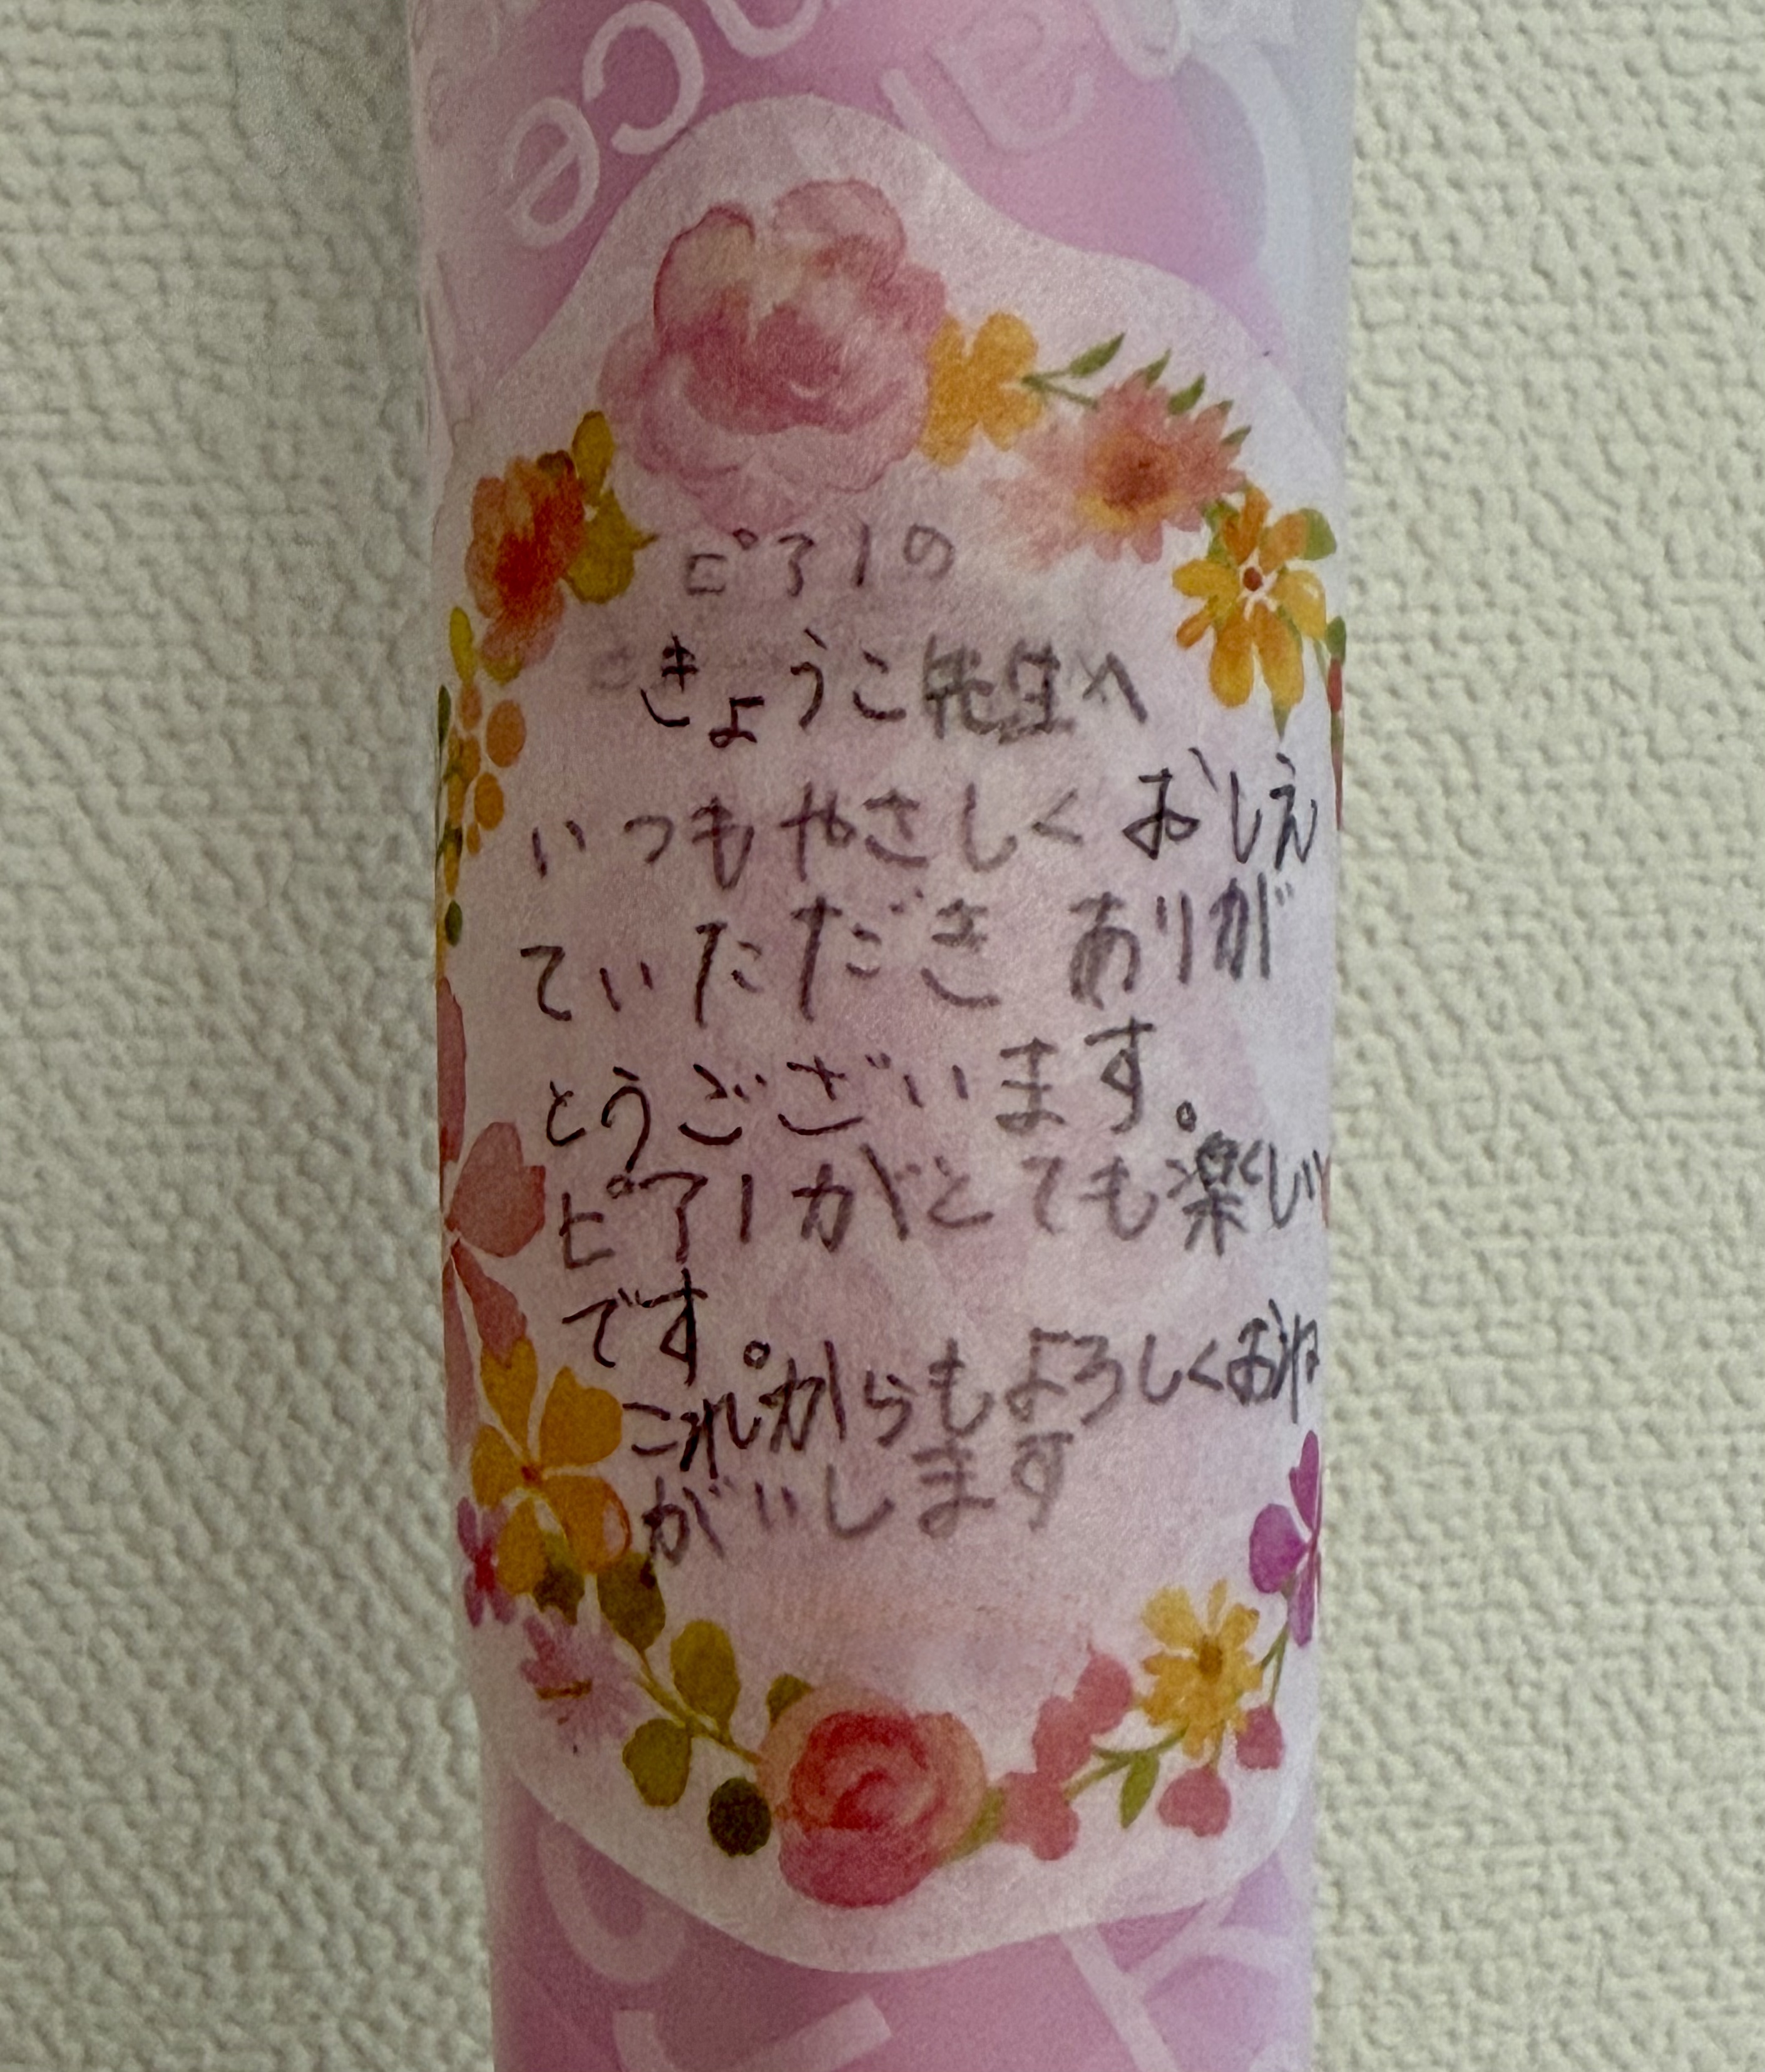 ピアノの
きょうこ先生へ
いつもやさしくおしえ
ていただきありが
とうございます。
ピアノがとても楽しい
です。
これからもよろしくおね
がいします